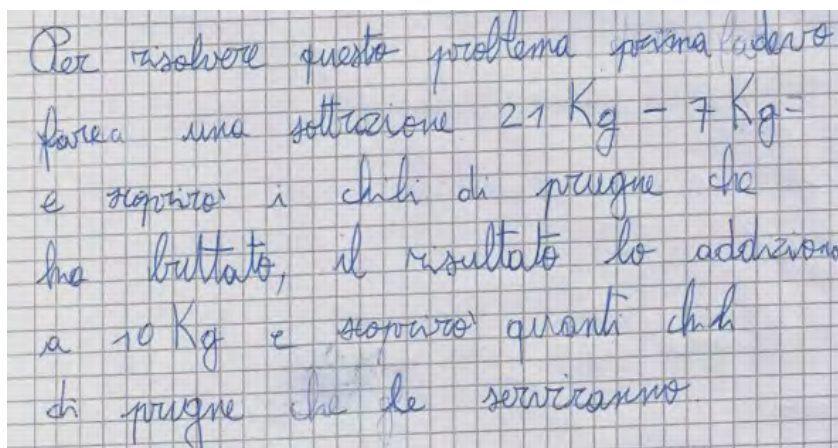 Per risolvere questo problema prima devo
fare una sottrazione 21 Kg - 7 Kg=
e scoprirò i chili di prugne che
ha buttato, il risultato lo addiziono
a 10 Kg e scoprirò quanti chili
di prugne che le serviranno.